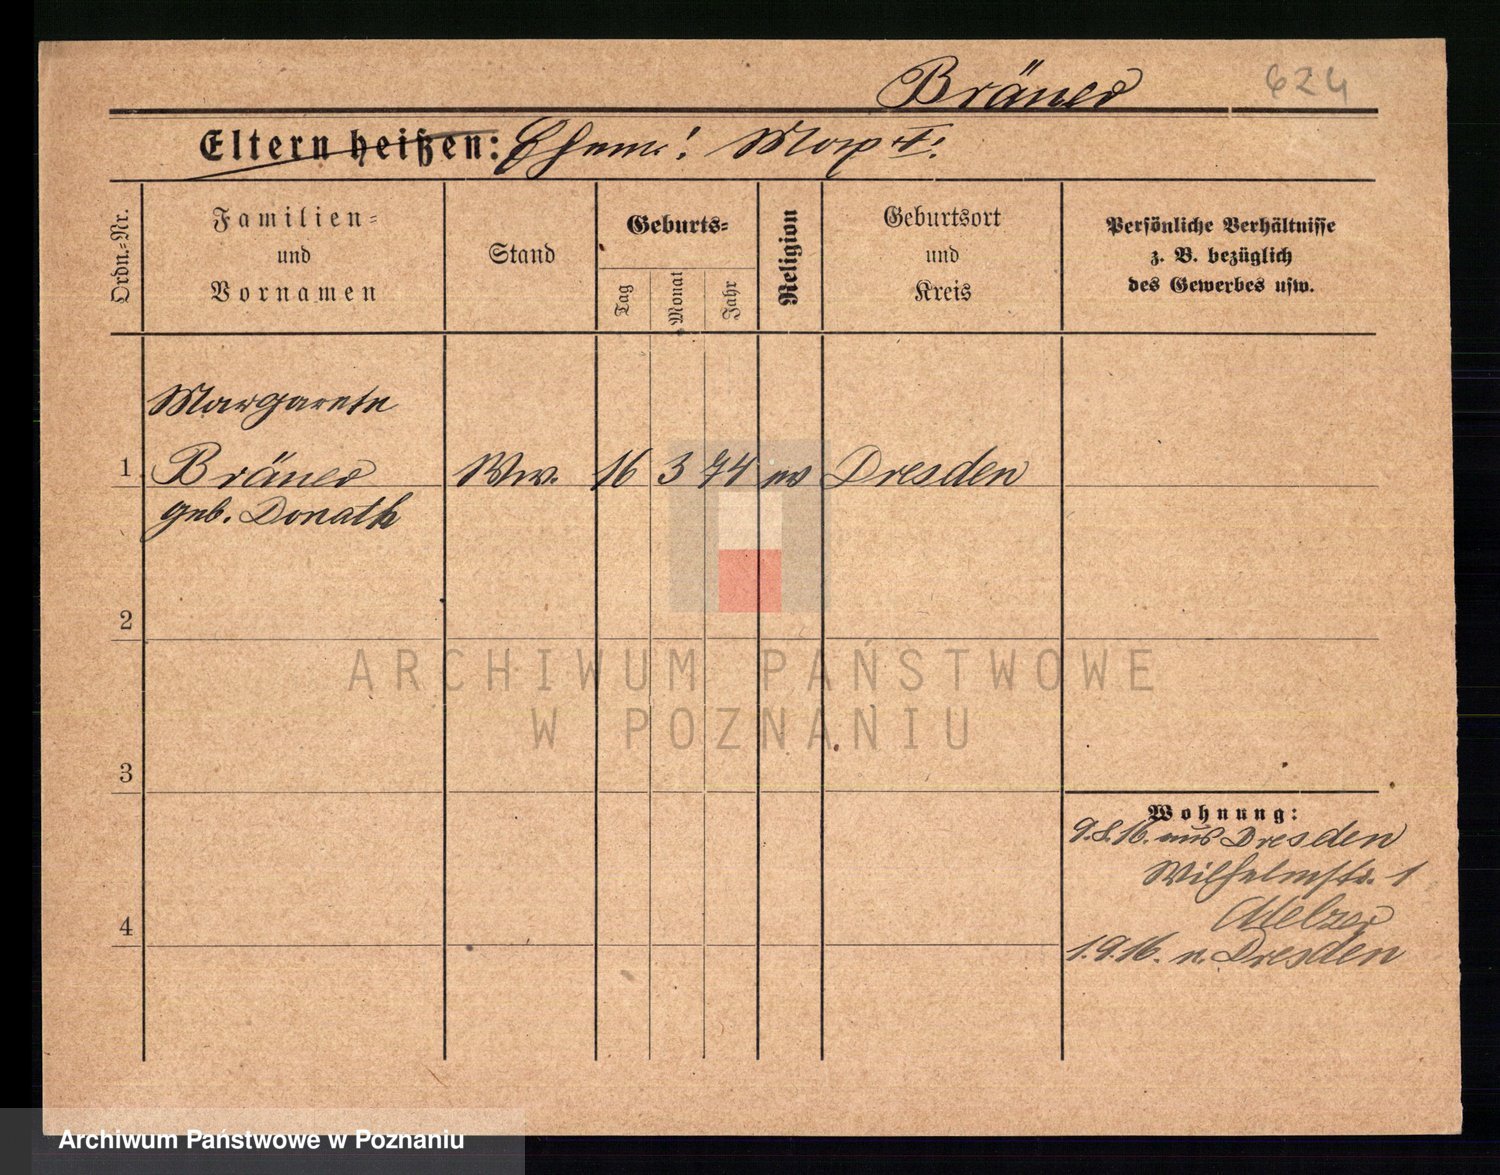 Bräuer 624
Eltern heißen: Ehem.: Max †.
Ordn.-Nr.
Familien-
und
Vornamen
Stand
Geburts-
Tag
Monat
Jahr
Religion
Geburtsort
und
Kreis
Persönliche Verhältnisse
z. B. bezüglich
des Gewerbes usw.
Margarete
1 Bräuer Ww. 16 3 74 ev Dresden
geb. Donath
2
ARCHIWUM PAŃSTWOWE
W POZNANIU
3
Wohnung:
9.8.16. aus Dresden
Wilhelmstr. 1
Melzer
4
1.9.16. n. Dresden
Archiwum Państwowe w Poznaniu